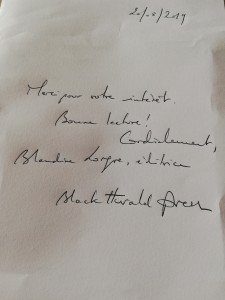 /2019
Merci pour votre intérêt.
Bonne lecture!
Cordialement,
Blandine Longre, éditrice
Black Herald Press